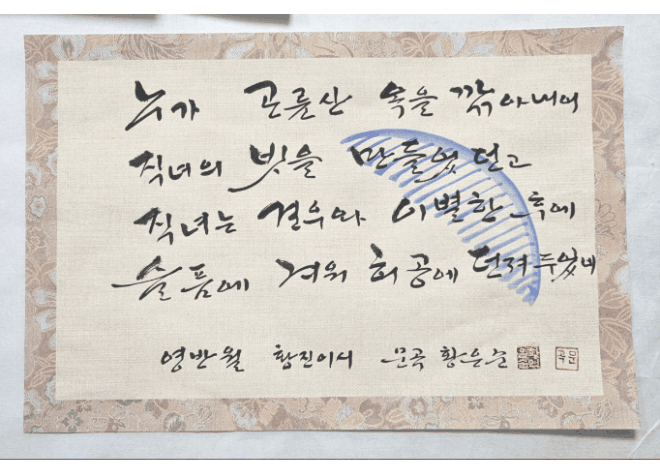 누가 곤륜산 옥을 깎아내어
직녀의 빗을 만들었던고
직녀는 견우와 이별한 후에
슬픔에 겨워 허공에 던져두었네
영반월 황진이시 문곡 황은순
문곡